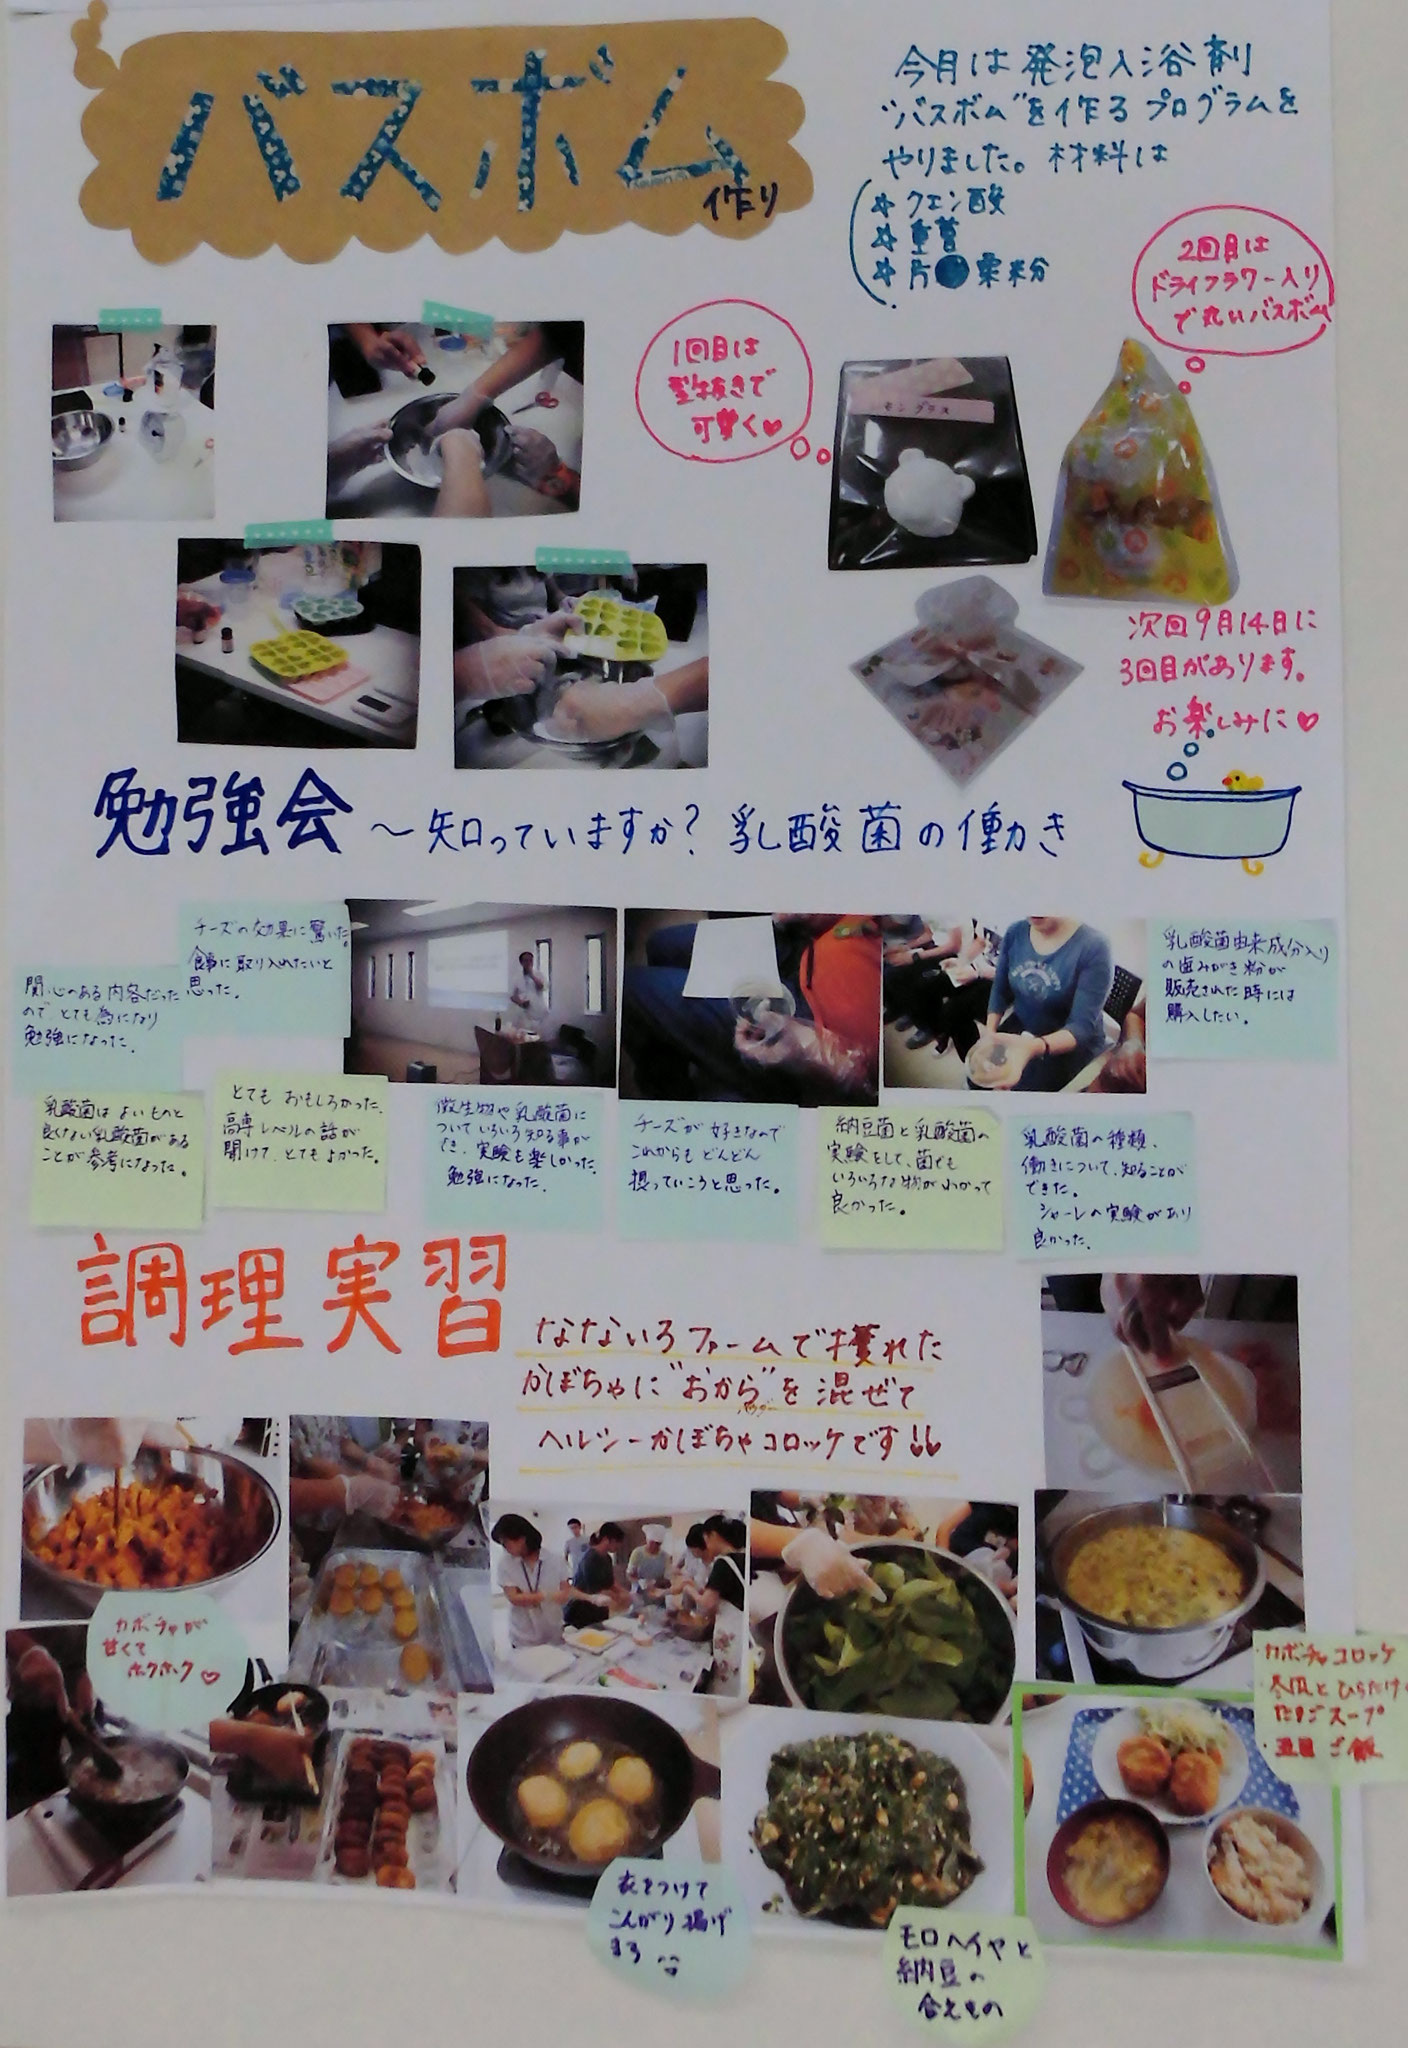 バスボム
作り
今月は発泡入浴剤
"バスボム"を作るプログラムを
やりました。材料は
☆クエン酸
☆重曹
☆片栗粉
1回目は
型抜きで
可愛く♥
2回目は
ドライフラワー入り
で丸いバスボム
次回9月14日に
3回目があります。
お楽しみに♡
勉強会 〜知っていますか？乳酸菌の働き
関心のある内容だった
ので、とても為になり
勉強になった。
チーズの効果に驚いた。
食事に取り入れたいと
思った。
乳酸菌由来成分入り
の歯みがき粉が
販売された時には
購入したい。
乳酸菌はよいものと
良くない乳酸菌がある
ことが参考になった。
とてもおもしろかった。
高専レベルの話が
聞けて、とてもよかった。
微生物や乳酸菌に
ついていろいろ知る事が
でき、実験も楽しかった。
勉強になった。
チーズが好きなので
これからもどんどん
摂っていこうと思った。
納豆菌と乳酸菌の
実験をして、菌でも
いろいろな物がわかって
良かった。
乳酸菌の種類、
働きについて、知ることが
できた。
シャーレの実験があり
良かった。
調理実習
なないろファームで獲れた
かぼちゃに"おから"を混ぜて
ヘルシーかぼちゃコロッケです!!
カボチャが
甘くて
ホクホク♡
・カボチャコロッケ
・冬瓜とひらたけの
たまごスープ
・豆ご飯
衣をつけて
こんがり揚げ
ます
モロヘイヤと
納豆の
合えもの